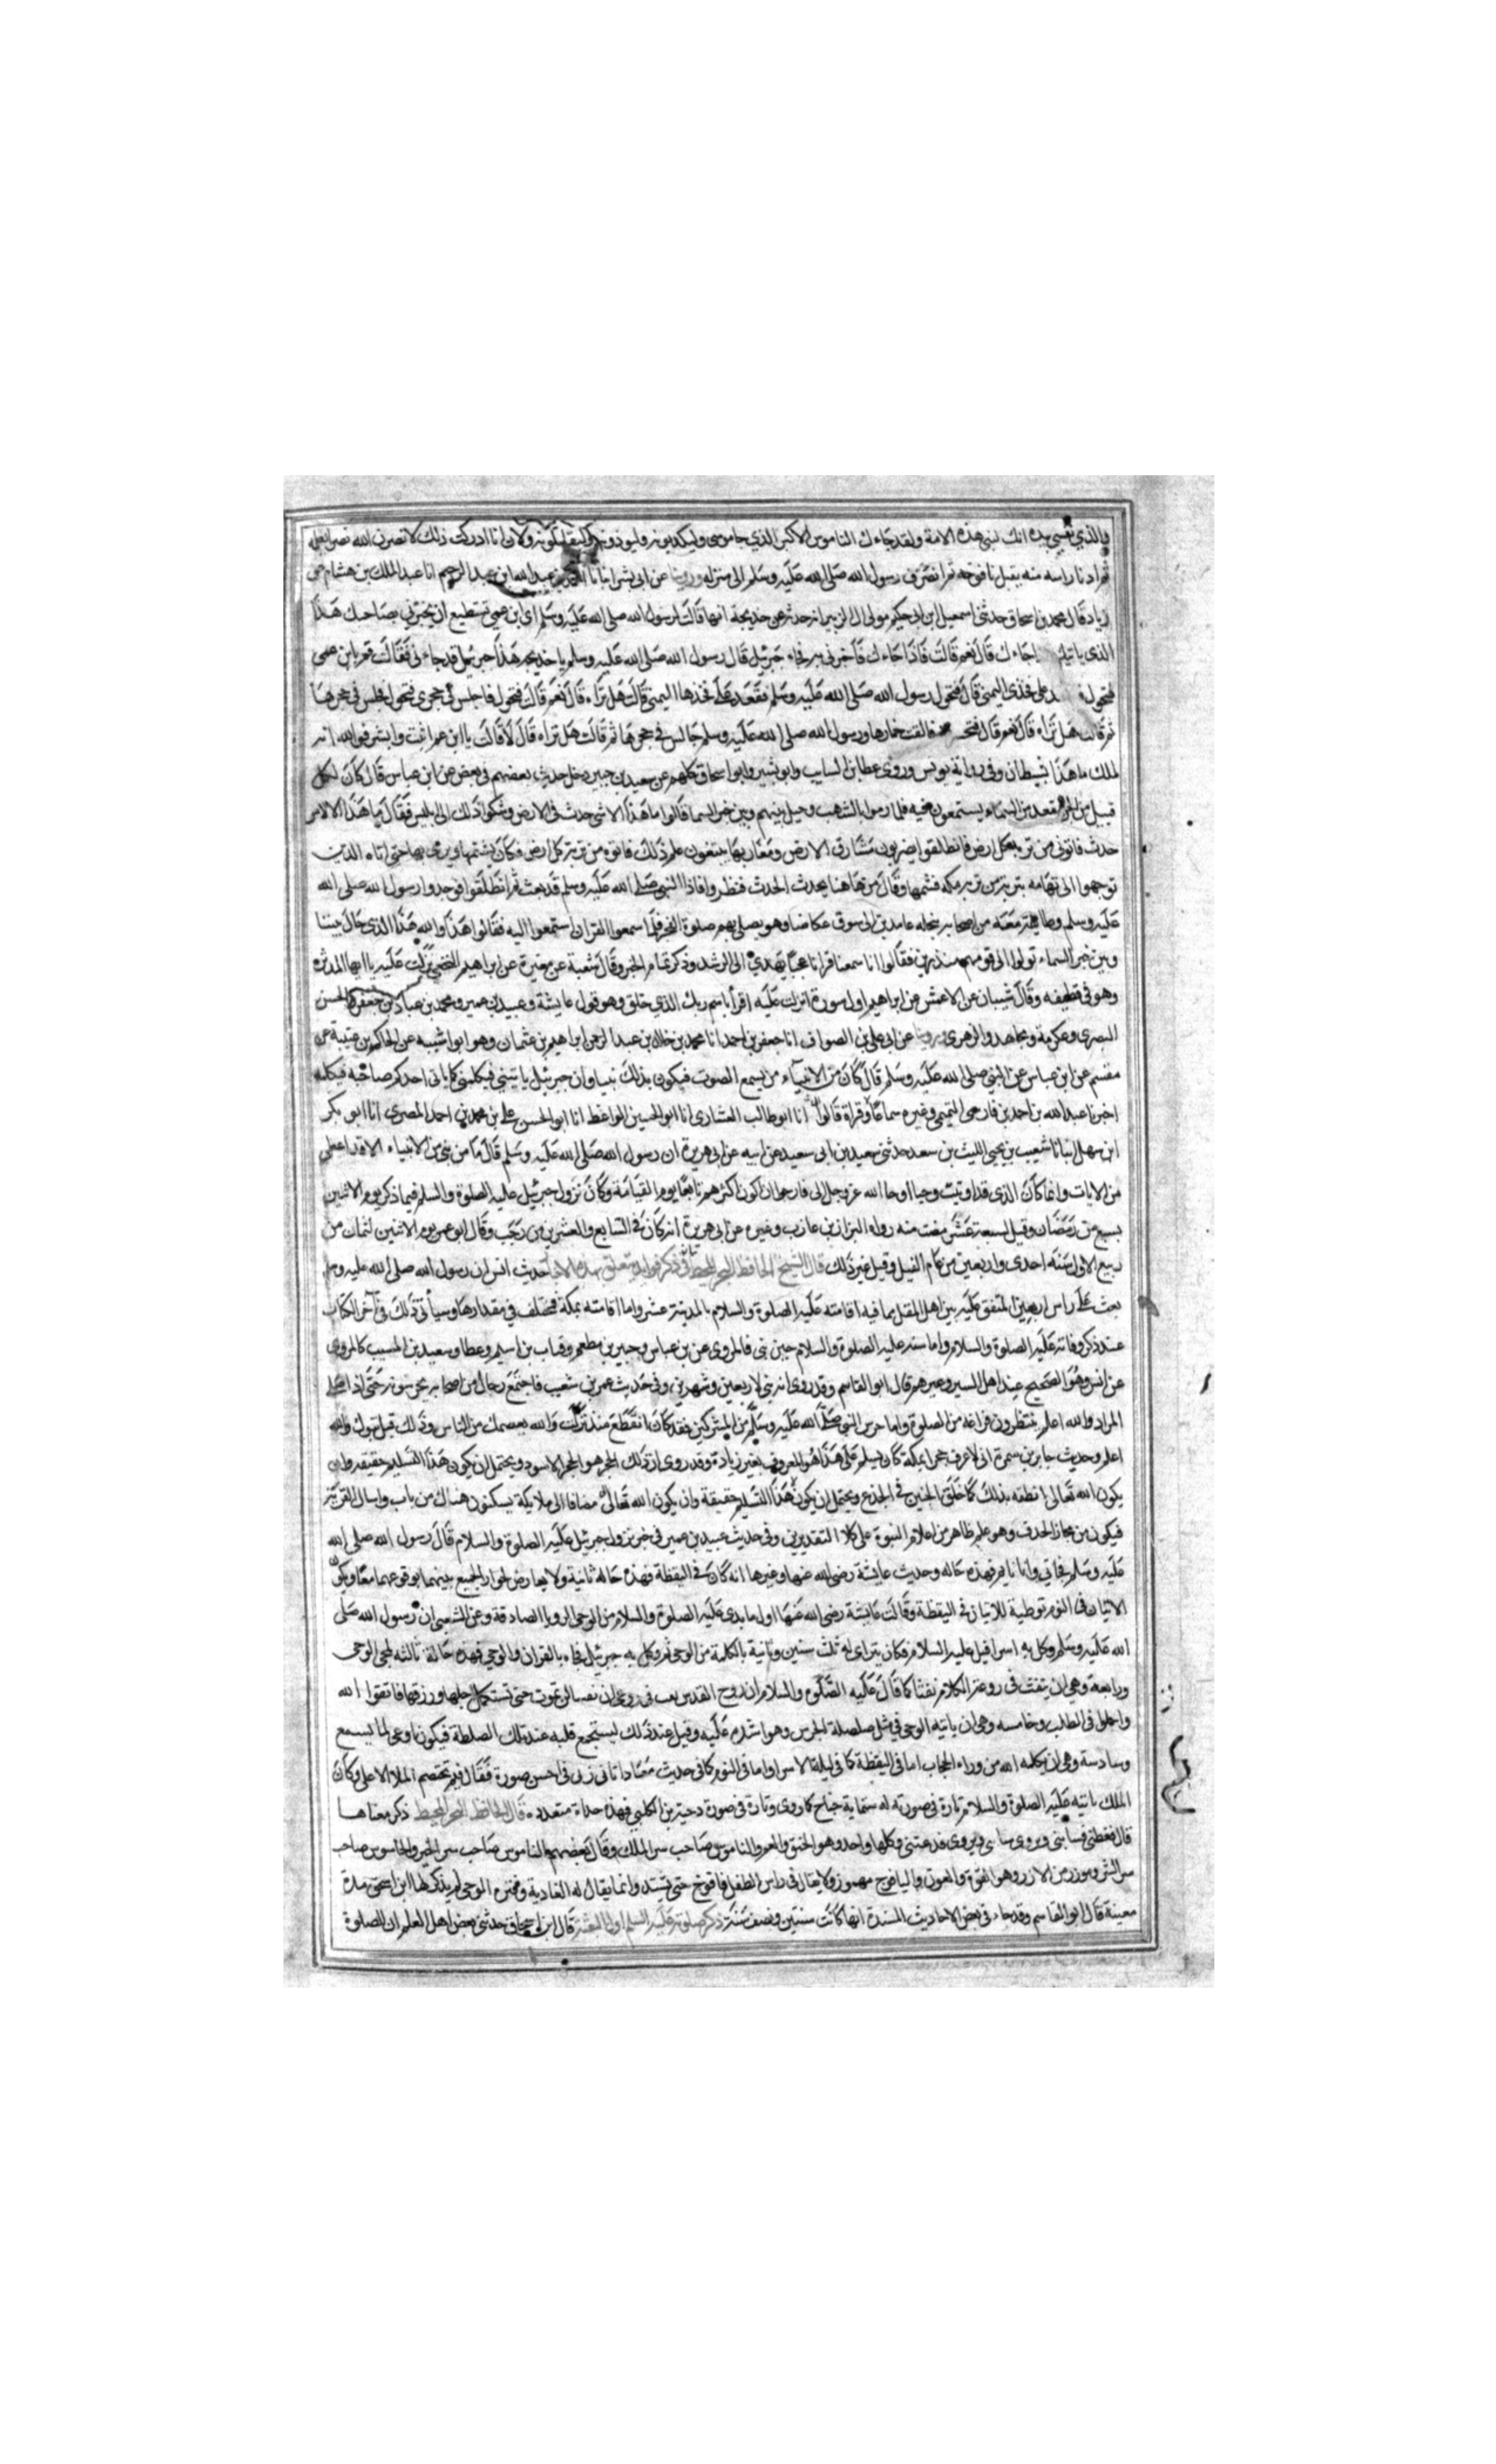 والذي نفسي بيده انك لنبي هذه الامة ولقد جاءك الناموس الاكبر الذي جا موسى وليكذبونه وليوذونه وليقاتلونه ولان انا ادركت ذلك لانصرن الله نصرا يعلمه
ثم ادنا راسه منه يقبل يافوخه ثم انصرف رسول الله صلى الله عليه وسلم الى منزله وروينا عن ابي بشر انبانا عبد الله بن عبد الرحيم انا عبد الملك بن هشام عن
زياد قال محمد بن اسحاق حدثني اسمعيل ابن ابي حكيم مولى ال الزبير انه حدث عن خديجة انها قالت لرسول الله صلى الله عليه وسلم اي ابن عمي تستطيع ان تخبرني بصاحبك هذا
الذي ياتيك اجاءك قال نعم قالت فاذا جاءك فاخبرني به فجاء جبرئيل قال رسول الله صلى الله عليه وسلم يا خديجة هذا جبرئيل قد جاءني فقالت قم يابن عمي
على فخذي اليمنى قال فتحول رسول الله صلى الله عليه وسلم فقعد على فخذها اليمنى قالت هل تراه قال نعم قالت فتحول فاجلس في حجري فتحول فجلس في حجرها
ثم قالت هل تراه قال نعم قال فالقت خمارها ورسول الله صلى الله عليه وسلم جالس في حجرها ثم قالت هل تراه قال لا قالت يا ابن عم اثبت وابشر فوالله انه
لملك ما هذا بشيطان وفي رواية يونس وروى عطا بن السايب وابو بشير وابو اسحاق كلهم عن سعيد بن جبير دخل حديث بعضهم في بعض عن ابن عباس قال كان لكل
قبيل من الجن مقعد من السماء يستمعون فيه فلما رموا بالشهب وحيل بينهم وبين خبر السما قالوا ما هذا الا شي حدث في الارض وشكوا ذلك الى ابليس فقال ما هذا الا لامر
حدث فاتوني من تربة كل ارض فانطلقوا يضربون مشارق الارض ومغاربها يبتغون علم ذلك فاتوه من تربة كل ارض وكان يشتمها ويرمي بها حتى اتاه الذين
توجهوا الى تهامه بتربة من تربة مكه فشمها وقال من هاهنا يحدث الحدث فنظروا فاذا النبي صلى الله عليه وسلم قد بعث ثم انطلقوا فوجدوا رسول الله صلى الله
عليه وسلم وطايفة معه من اصحابه بنخله عامدين الى سوق عكاض وهو يصلي بهم صلوة الفجر فلما سمعوا القران استمعوا اليه فقالوا هذا والله هذا الذي حال بيننا
وبين خبر السماء تولوا الى قومهم منذرين فقالوا انا سمعنا قرانا عجبا يهدي الى الرشد وذكر تمام الخبر وقال شعبة عن مغيرة عن ابراهيم النخعي نزلت عليه يا ايها المدثر
وهو في قطيفه وقال شيبان عن الاعمش عن ابراهيم اول سورة انزلت عليه اقرأ باسم ربك الذي خلق وهو قول عايشة وعبيد بن عمير ومحمد بن عباد بن جعفر والحسن
البصري وعكرمة ومجاهد والزهري وروينا عن ابي علي بن الصواف انا جعفر بن احمد انا محمد بن خالد بن عبد الرحمن ابراهيم بن عثمان وهو ابو اشيبه عن الحاكم بن عتيبة عن
مقسم عن ابن عباس عن النبي صلى الله عليه وسلم قال كان من الانبياء من يسمع الصوت فيكون بذلك نبيا وان جبرئيل ياتيني فيكلمني كما ياتي احدكم صاحبه فيكلمه
اخبرنا عبد الله بن احمد بن فارعي التميمي وغيره سماعا وقراة قالوا انا ابو طالب العشاري انا ابو الحسين الواعظ انا ابو الحسن علي بن محمد بن احمد المصري انا ابو بكر
ابن سهل انبانا شعيب بن يحيى الليث بن سعد حدثني سعيد بن ابي سعيد عن ابيه عن ابي هريرة ان رسول الله صلى الله عليه وسلم قال ما من نبي من الانبياء الا قد اعطى
من الايات وانما كان الذي قد اوتيت وحيا اوحا الله عز وجل الي فارجوا ان اكون اكثرهم تابعا يوم القيامة وكان نزول جبرئيل عليه الصلوة والسلم فيما ذكر يوم الاثنين
لسبع من رمضان وقيل لسبعة عشر مضت منه رواه البزاز بن عازب وغيره عن ابي هريرة انه كان في السابع والعشرين من رجب وقال ابو عمر يوم الاثنين لثمان من
ربيع الاول سنة احدى واربعين من عام الفيل وقيل غير ذلك قال الشيخ الحافظ البحر المحيط في ذكر فوايد تتعلق بهذه حديث انس ان رسول الله صلى الله عليه وسلم
بعث على راس اربعين المتفق عليه بين اهل النقل مما فيه اقامته عليه الصلوة والسلام بالمدينة عشرا واما اقامته بمكة فمختلف في مقدارها وسياتي ذلك في آخر الكتاب
عند ذكر وفاته عليه الصلوة والسلام واما سنه عليه الصلوة والسلام حين نبي فالمروي عن بن عباس وجبير بن مطعم وقباب بن اسيم وعطا وسعيد بن المسيب كالمروي
عن انس وهو الصحيح عند اهل السير وغيرهم قال ابو القاسم وقد روي انه نبي لاربعين وشهرين وفي حديث عمر بن شعيب فاجتمع رجال من اصحابه يحرسونه حتى اذا صلى
المراد والله اعلم ينتظرون فراغه من الصلوة واما حرس النبي صلى الله عليه وسلم من المشركين فقد كان انقطع منذ نزلت والله يعصمك من الناس وذلك قبل تبوك والله
اعلم وحديث جابر بن سمرة اني لاعرف حجرا بمكة كان يسلم علي هذا هو المعروف بغير زيادة وقد روي ان ذلك الحجر هو الحجر الاسود ويحتمل ان يكون هذا التسليم حقيقه وان
يكون الله تعالى انطقه بذلك كما خلق الحنين في الجذع ويحتمل ان يكون هذا التسليم حقيقة وان يكون الله تعالى مضافا الى ملايكة يسكنون هناك من باب واسال القرية
فيكون من مجاز الحذف وهو علم ظاهر من اعلام النبوة على كلا التقديرين وفي حديث عبيد بن عمير في خبر نزول جبرئيل عليه الصلوة والسلام قال رسول الله صلى الله
عليه وسلم فجاني وانا نايم فهذه حاله وحديث عايشة رضى الله عنها وغيرها انه كان في اليقظة فهذه حاله ثانية ولا يعارض لجواز الجمع بينهما بوقوعهما معا ويكون
الاتيان في النوم توطية للاتيان في اليقظة وقالت عايشة رضى الله عنها اول ما بدى عليه الصلوة والسلام من الوحي الرويا الصادقة وعن الشعبي ان رسول الله صلى
الله عليه وسلم وكل به اسرافيل عليه السلام فكان يتراى له ثلث سنين وياتيه بالكلمة من الوحي ثم وكل به جبرئيل فجاء بالقران والوحي فهذه حالة ثالثه لمجي الوحي
ورابعة وهي ان ينفث في روعه الكلام نفثا كما قال عليه الصلوة والسلام ان روح القدس نفث في روعي ان نفسا لن تموت حتى تستكمل اجلها ورزقها فاتقوا الله
واجملوا في الطلب وخامسه وهي ان ياتيه الوحي في مثل صلصلة الجرس وهو اشده عليه وقيل عند ذلك ليستجمع قلبه عند تلك الصلصلة فيكون اوعى لما يسمع
وسادسة وهي ان يكلمه الله من وراء الحجاب اما في اليقظة كما في ليلة الاسرا واما في النوم كما في حديث معاذ اتاني ربي في احسن صورة فقال فيم يختصم الملا الاعلى وكان
الملك ياتيه عليه الصلوة والسلام تارة في صورته له ستماية جناح كما روي وتارة في صورة دحية بن الكلبي فهذه حالة متعدده قال الحافظ البحر المحيط ذكر معناها
قال فغطني ويروى سابني ويروى فدعتني وكلها واحد وهو الخنق والغم والناموس صاحب سر الملك وقال بعضهم الناموس صاحب سر الخير والجاسوس صاحب
سر الشر وموزر من الازر وهو القوة والعون واليافوخ مهموز ولا يقال في راس الطفل يافوخ حتى يشتد وانما يقال له الغادية وفتره الوحي لم يذكر لها ابن اسحق مدة
معينة قال ابو القاسم وقد جاء في بعض الاحاديث المسندة انها كانت سنتين ونصف سنة ذكر صلوته عليه السلم اول البعثة قال ابن اسحاق حدثني بعض اهل العلم ان الصلوة